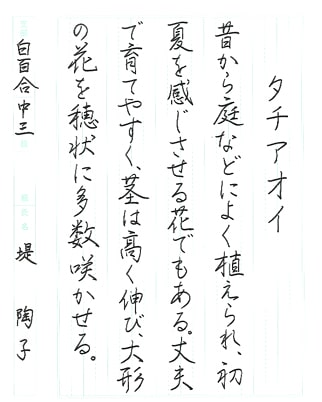 タチアオイ
昔から庭などによく植えられ、初
夏を感じさせる花でもある。丈夫
で育てやすく、茎は高く伸び、大形
の花を穂状に多数咲かせる。
白百合中三 堤 陶子